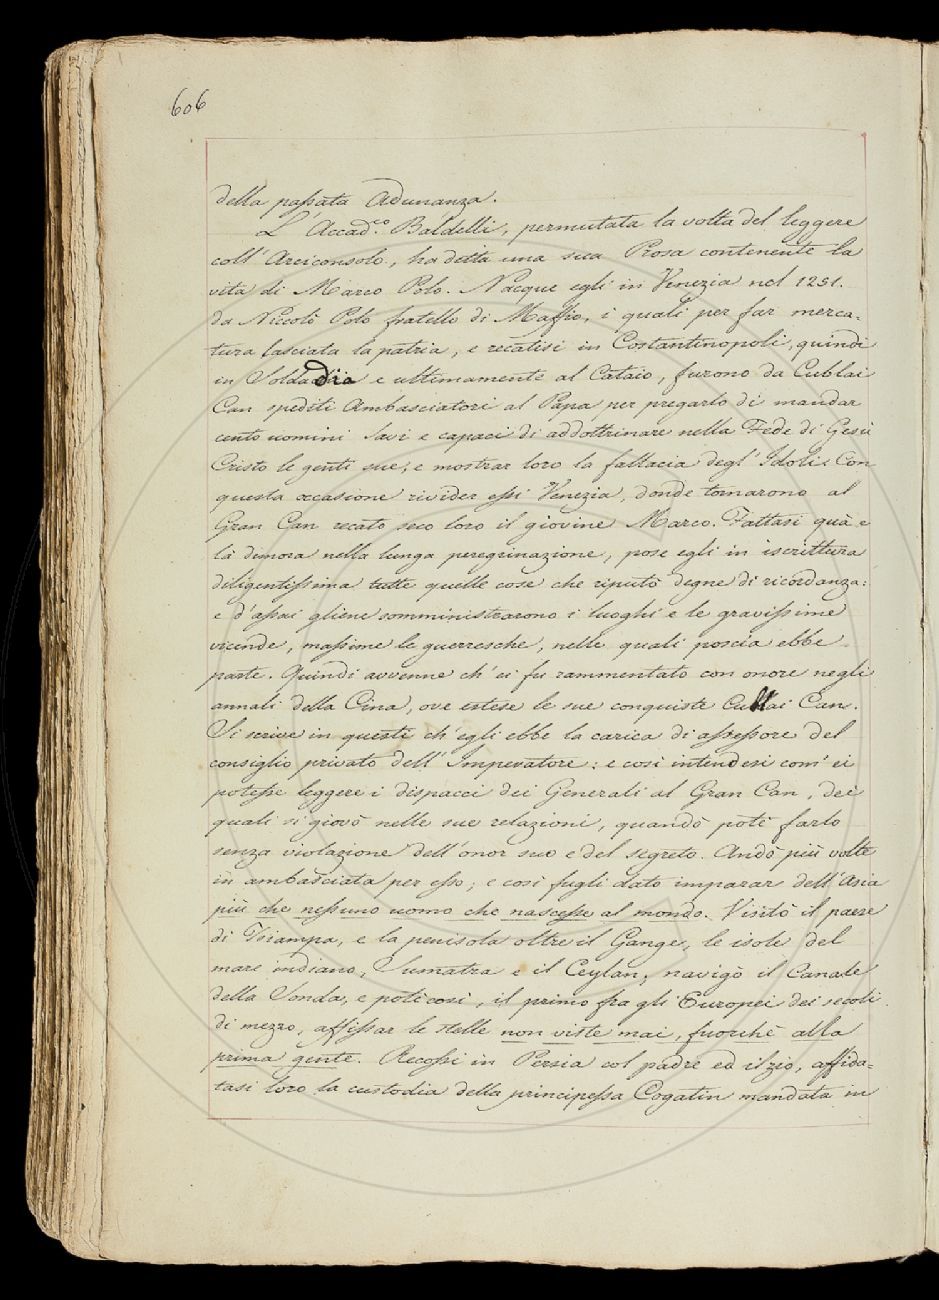 606
della passata Adunanza.
L'Accad.co Baldelli, permutata la volta del leggere
coll'Arciconsolo, ha detta una sua Prosa contenente la
vita di Marco Polo. Nacque egli in Venezia nel 1251.
da Niccolò Polo fratello di Maffio, i quali per far merca-
tura lasciata la patria, e recatisi in Costantinopoli, quindi
in Soldadia e ultimamente al Cataio, furono da Cublai
Can spediti Ambasciatori al Papa per pregarlo di mandar
cento uomini savi e capaci di addottrinare nella Fede di Gesù
Cristo le genti sue, e mostrar loro la fallacia degl'Idoli. Con
questa occasione rivider essi Venezia, donde tornarono al
Gran Can recato seco loro il giovine Marco. Fattasi quà e
là dimora nella lunga peregrinazione, pose egli in iscrittura
diligentissima tutte quelle cose che riputò degne di ricordanza:
e d'assai gliene somministrarono i luoghi e le gravissime
vicende, massime le guerresche, nelle quali poscia ebbe
parte. Quindi avvenne ch'ei fu rammentato con onore negli
annali della Cina, ove estese le sue conquiste Cublai Can.
Si scrive in questi ch'egli ebbe la carica di assessore del
consiglio privato dell'Imperatore: e così intendesi com'ei
potesse leggere i dispacci dei Generali al Gran Can, dei
quali si giovò nelle sue relazioni, quando potè farlo
senza violazione dell'onor suo e del segreto. Andò più volte
in ambasciata per esso; e così fugli dato imparar dell'Asia
più che nessuno uomo che nascesse al mondo. Visitò il paese
di Tsiampa, e la penisola oltre il Gange, le isole del
mare indiano, Sumatra e il Ceylan; navigò il Canale
della Sonda, e potè così, il primo fra gli Europei dei secoli
di mezzo, affissar le stelle non viste mai, fuorchè alla
prima gente. Recossi in Persia col padre ed il zio, affida-
tasi loro la custodia della principessa Cogatin mandata in